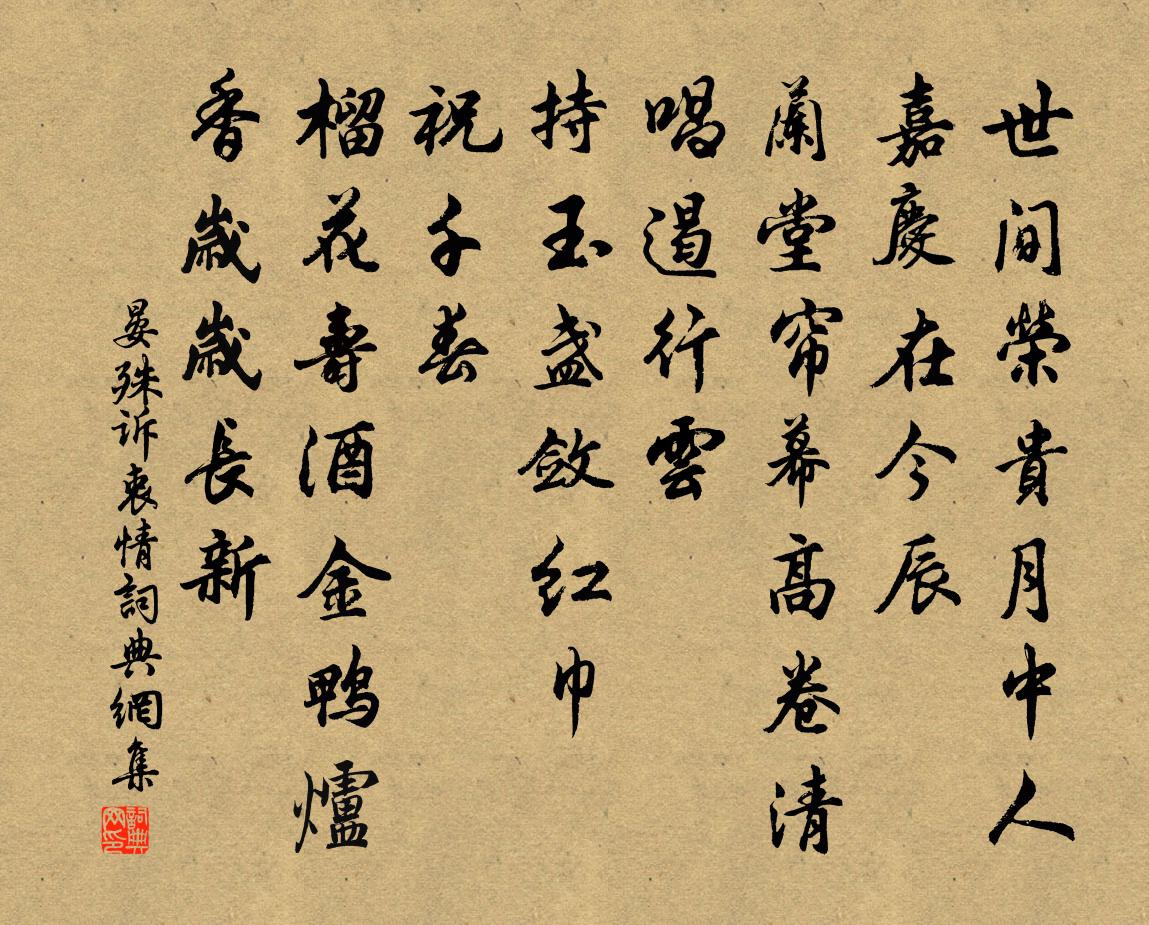 世間榮貴月中人
嘉慶在今辰
蘭堂帘幕高卷清
唱遏行雲
持玉盞斂红巾
祝千春
榴花壽酒金鴨爐
香歲歲長新
晏殊诉衷情詞典網集
詞典网印